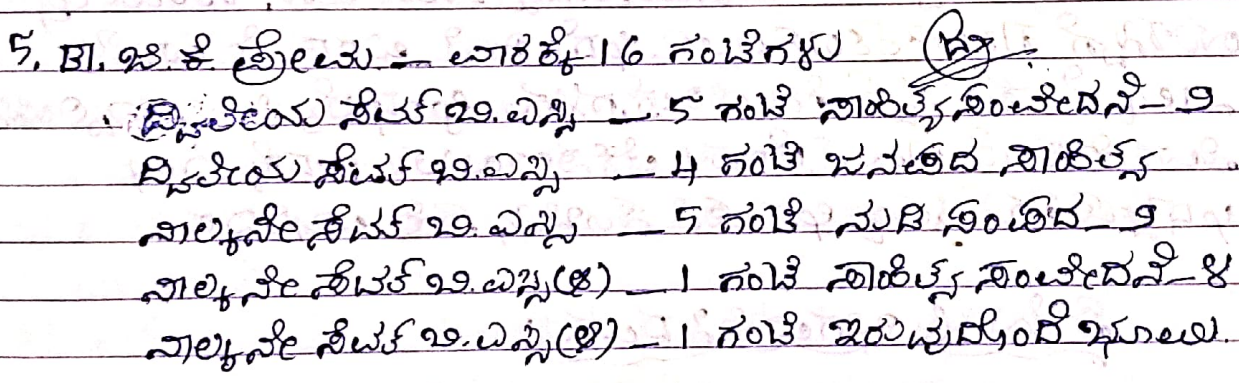 5. ಡಾ. ಜಿ. ಕೆ. ಪ್ರೇಮ :- ವಾರಕ್ಕೆ 16 ಗಂಟೆಗಳು
ದ್ವಿತೀಯ ಸೆಮ್ ಬಿ.ಎಸ್ಸಿ — 5 ಗಂಟೆ ಸಾಹಿತ್ಯ ಸಂವೇದನೆ - ೨
ದ್ವಿತೀಯ ಸೆಮ್ ಬಿ.ಎಸ್ಸಿ — 4 ಗಂಟೆ ಜನಪದ ಸಾಹಿತ್ಯ
ನಾಲ್ಕನೇ ಸೆಮ್ ಬಿ.ಎಸ್ಸಿ — 5 ಗಂಟೆ ನುಡಿ ಸಂಪದ - ೨
ನಾಲ್ಕನೇ ಸೆಮ್ ಬಿ.ಎಸ್ಸಿ (ಆ) — 1 ಗಂಟೆ ಸಾಹಿತ್ಯ ಸಂವೇದನೆ - ೪
ನಾಲ್ಕನೇ ಸೆಮ್ ಬಿ.ಎಸ್ಸಿ (ಆ) — 1 ಗಂಟೆ ಇರುವುದೊಂದೆ ಭೂಮಿ.